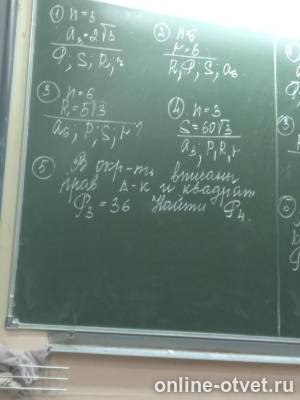 ① n=3
a₃=2√3
P; S; R; r
②
r=6
R; P; S; a₆
③ n=6
R=5√3
a₆; P; S; r ?
④ n=3
S=60√3
a₃; P, R, r
⑤ В окр-ть вписаны
прав Δ-к и квадрат
P₃=36 Найти P₄.
online-otvet.ru